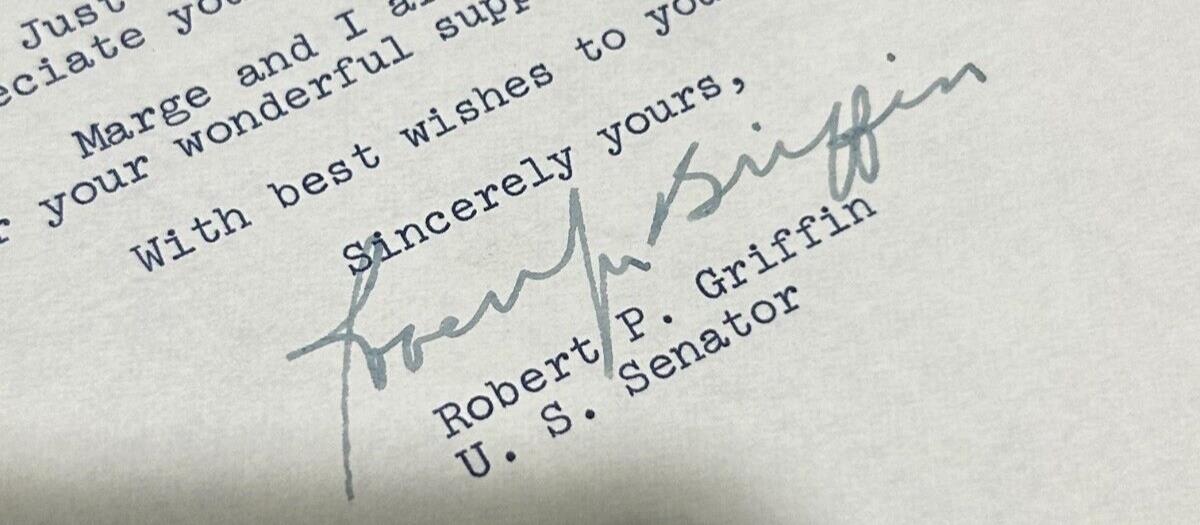 Just
eciate yo
Marge and I a
r your wonderful supp
With best wishes to you
Sincerely yours,
Robert P. Griffin
Robert P. Griffin
U. S. Senator